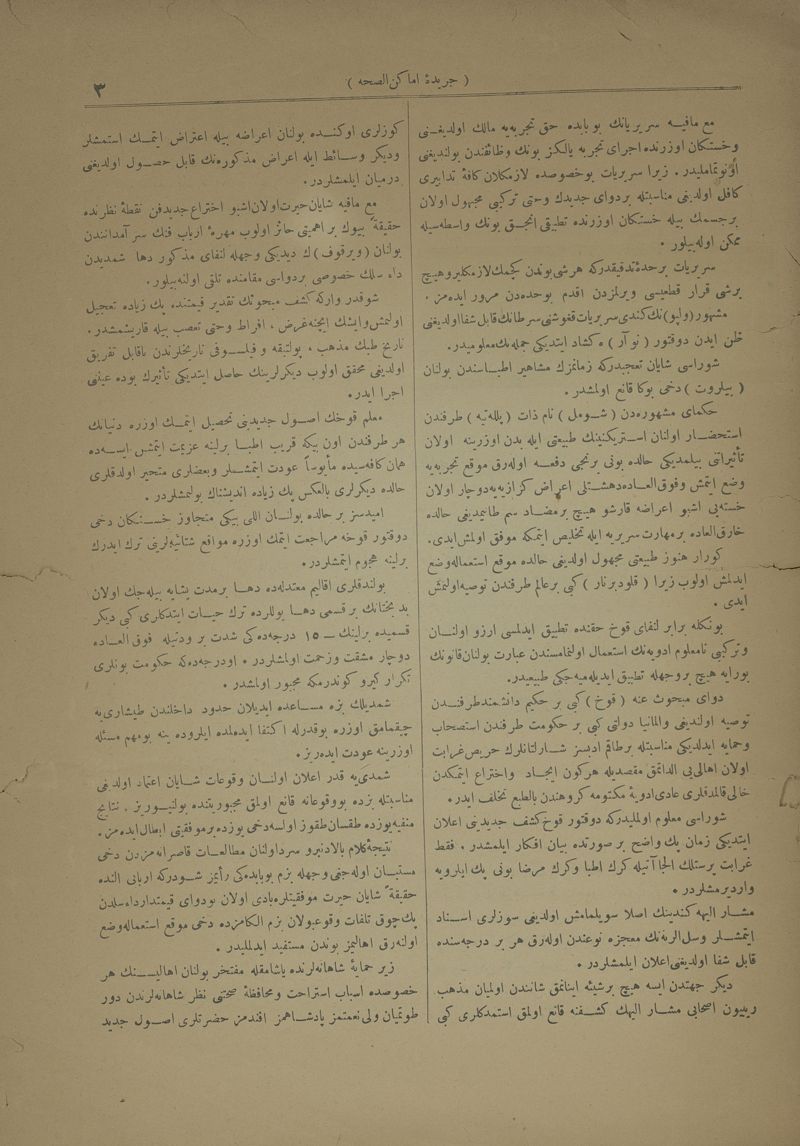 ( جريدۀ اماكن الصحه )
٣
مع مافيه سريرياتك بو بابده حق تجربه‌يه مالك اولديغنى
وخستكان اوزرنده اجراى تجربه يالكز بونك وظائفندن بولنديغى
اونوتماملیدر . زيرا سريريات بوخصوصده لازمكلان كافۀ تدابيرى
كافل اولديغى مناسبتله بر دواى جديدك وحتى تركيبى مجهول اولان
برجسمك بيله خستكان اوزرنده تطبيقى انجق بونك واسطه‌سيله
ممكن اوله‌بيلور .
سريريات برحدۀ تدقيقدركه هرشى بوندن كچمك لازمكلير و هيچ
برشى قرار قطعيسى ويرلمزدن اقدم بوحده‌دن مرور ايده‌مز .
مشهور (ولپو) نك كندى سريريات قغوشنى سرطانك قابل شفا اولديغى
ظن ايدن دوقتور ( نوآر ) ه كشاد ايتديكى جمله‌نك معلوميدر .
شوراسى شايان تعجبدركه زمانمزك مشاهير اطباسندن بولنان
( بيلروت ) دخى بوكا قانع اولمشدر .
حكماى مشهوره‌دن ( شومل ) نام ذات ( پلله‌تيه ) طرفندن
استحضار اولنان استريكنينك طبيعتى ايله بدن اوزرينه اولان
تأثيراتى بيلمديكى حالده بونى برنجى دفعه اوله‌رق موقع تجربه‌يه
وضع ايتمش وفوق‌العاده دهشتلى اعراض كزازيه‌يه دوچار اولان
خسته‌يى اشبو اعراضه قارشو هيچ برمضاد سم طانيمديغى حالده
خارق‌العاده برمهارت سريريه ايله تخليص ايتمكه موفق اولمش ايدى .
كورار هنوز طبيعتى مجهول اولديغى حالده موقع استعماله وضع
ايدلمش اولوب زيرا ( قلودبرنار ) كبى برعالم طرفندن توصيه اولنمش
ايدى .
بونكله برابر لنفاى قوخ حقنده تطبيق ايدلمسى ارزو اولنان
وتركيبى نامعلوم ادويه‌نك استعمال اولنمامسندن عبارت بولنان قانونك
بورايه هيچ بروجهله تطبيق ايديله‌ميه‌جكى طبيعيدر .
دواى مبحوث عنه ( قوخ ) كبى بر حكيم دانشمند طرفندن
توصيه اولنديغى والمانيا دولتى كبى بر حكومت طرفندن استصحاب
وحمايه ايدلديكى مناسبتله برطاقم ادبسز شارلتانلرك حريص غرابت
اولان اهالى‌يى الداتمق مقصديله هركون ايجاد واختراع ايتمكدن
خالى قالمدقلرى عادى ادويۀ مكتومه كروهندن بالطبع تخلف ايدر .
شوراسى معلوم اولمليدركه دوقتور قوخ كشف جديدينى اعلان
ايتديكى زمان پك واضح بر صورتده بيان افكار ايلمشدر . فقط
غرابت پرستلك الجاآتيله كرك اطبا وكرك مرضا بونى پك ايلرويه
وارديرمشلردر .
مشار اليهه كندينك اصلا سويلمامش اولديغى سوزلرى اسناد
ايتمشلر وسل الريه‌نك معجزه نوعندن اوله‌رق هر بر درجه‌سنده
قابل شفا اولديغنى اعلان ايلمشلردر .
ديكر جهتدن ايسه هيچ برشيئه اينانمق شانندن اولميان مذهب
ريبيون اصحابى مشار اليهك كشفنه قانع اولمق استمدكلرى كبى
كوزلرى اوكنده بولنان اعراضه بيله اعتراض ايتمك استمشلر
وديكر وسائط ايله اعراض مذكوره‌نك قابل حصول اولديغنى
درميان ايلمشلردر .
مع مافيه شايان حيرت اولان اشبو اختراع جديد فن نقطۀ نظرنده
حقيقةً بيوك بر اهميتى حائز اولوب مهرۀ ارباب فنك سرآمدانندن
بولنان (ويرقوف)ك ديديكى وجهله لنفاى مذكور دها شمديدن
داء سلك خصوصى بر دواسى مقامنده تلقى اولنه‌بيلور .
شوقدر واركه كشف مبحوثك تقدير قيمتنده پك زياده تعجيل
اولنمش وايشك ايچنه غرض ، افراط وحتى تعصب بيله قاريشمشدر .
تاريخ طبك مذهب ، پولتيقه و فيلسوفى تاريخلرندن ناقابل تفريق
اولديغى محقق اولوب ديكرلرينك حاصل ايتديكى تأثيرك بوده عينى
اجرا ايدر .
معلم قوخك اصول جديدينى تحصيل ايتمك اوزره دنيانك
هر طرفندن اون بيكه قريب اطبا برلينه عزيمت ايتمش ايسه‌ده
همان كافه‌سيده مأيوساً عودت ايتمشلر وبعضلرى متحير اولدقلرى
حالده ديكرلرى بالعكس پك زياده انديشناك بولنمشلردر .
اميدسز بر حالده بولنان اللى بيكى متجاوز خستكان دخى
دوقتور قوخه مراجعت ايتمك اوزره مواقع شتائيه‌لرينى ترك ايدرك
برلينه هجوم ايتمشلردر .
بولندقلرى اقاليم معتدله‌ده دها برمدت يشايه بيله‌جك اولان
بدبختانك بر قسمى دها يوللرده ترك حيات ايتدكلرى كبى ديكر
قسميده برلينك — ١٥ درجه‌ده‌كى شدت برودتيله فوق العاده
دوچار مشقت وزحمت اولمشلردر . اودرجه‌ده‌كه حكومت بونلرى
تكرار كيرو كوندرمكه مجبور اولمشدر .
شمديلك بزه مساعده ايديلان حدود داخلندن طيشارى‌يه
چيقمامق اوزره بوقدرله اكتفا ايده‌لم‌ده ايلروده ينه بومهم مسئله
اوزرينه عودت ايده‌رز .
شمدى‌يه قدر اعلان اولنان وقوعات شايان اعتماد اولديغى
مناسبتله بزده بووقوعاته قانع اولمق مجبوريتنده بولنيورز . نتايج
منفيه يوزده طقسان طقوز اولسه دخى يوزده برموفقيتى ابطال ايده‌مز .
نتيجۀ كلام بالاده‌نبرو سرد اولنان مطالعات قاصرانه‌مزدن دخى
مستبان اوله‌جغى وجهله بزم بوبابده‌كى رأيمز شودركه اربابى النده
حقيقةً شايان حيرت موفقيتلره بادى اولان بودواى قيمتدار داء سلدن
پك چوق تلفات وقوعبولان بزم الكامزده دخى موقع استعماله وضع
اولنه‌رق اهاليمز بوندن مستفيد ايدلمليدر .
زير حمايۀ شاهانه‌لرنده ياشامقله مفتخر بولنان اهالينك هر
خصوصده اسباب استراحت ومحافظۀ صحتنى نظر شاهانه‌لرندن دور
طوتميان ولى نعمتمز پادشاهمز افندمز حضرتلرى اصول جديد